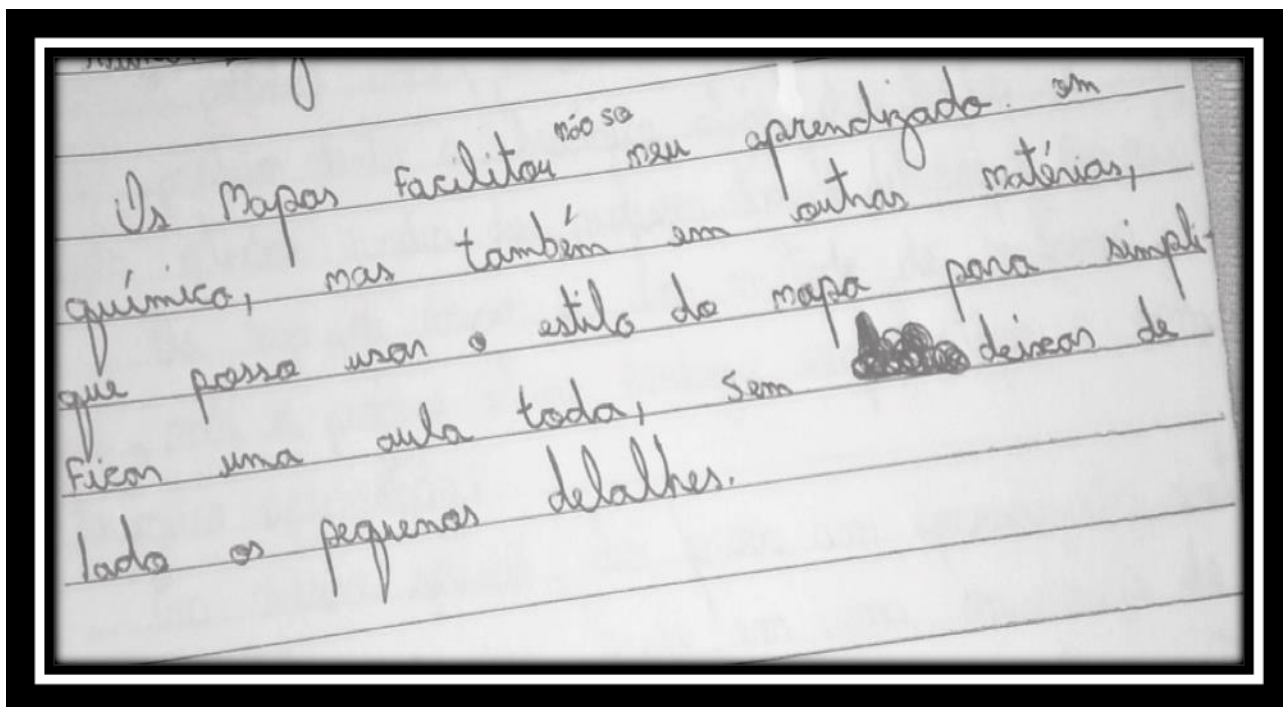 Os Mapas Facilitou não so meu aprendizado em
químico, mas também em outras matérias,
que posso usar o estilo do mapa para simpli-
Ficar uma aula toda, sem deixar de
lado os pequenos detalhes.